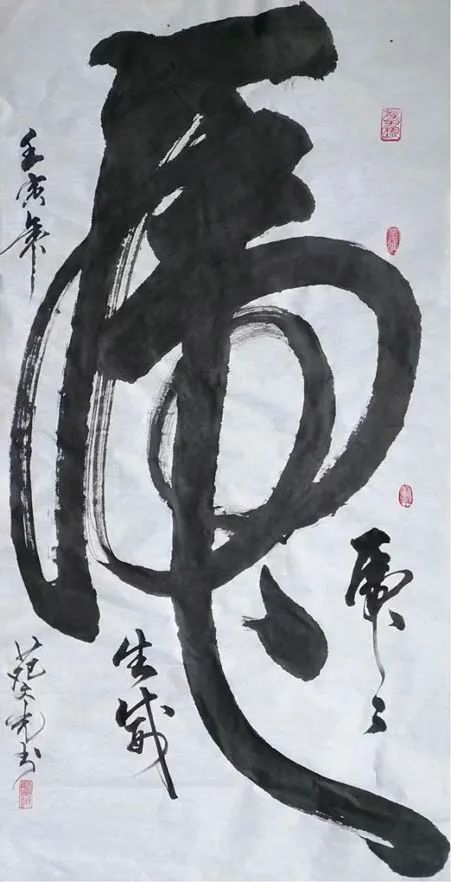 虎
虎々
生威
壬寅年
范 书